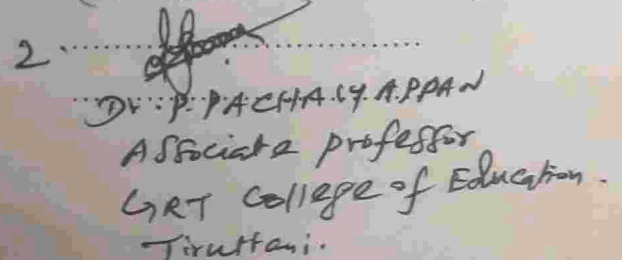 2
Dr. P. PACHAIYAPPAN
Associate professor
GRT College of Education.
Tiruttani.